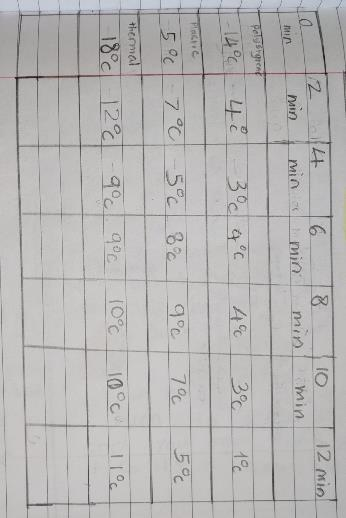 0 min 2 min 4 min 6 min 8 min 10 min 12 min
polystyrene -14°c -4°c -3°c 4°c 4°c 3°c 1°c
plastic -5°c -7°c -5°c 8°c 9°c 7°c 5°c
thermal -18°c -12°c -9°c 9°c 10°c 10°c 11°c